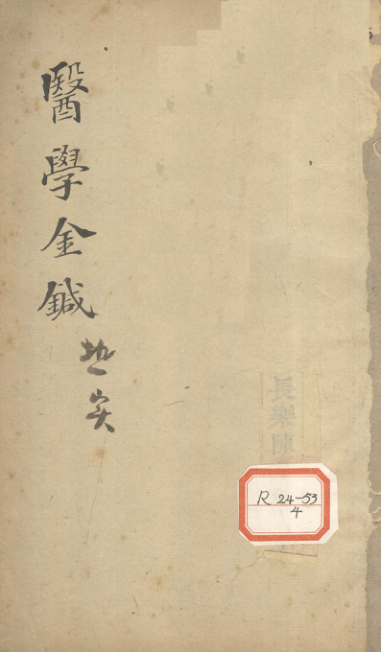 醫學金鍼
R 24-53
4
長樂陳